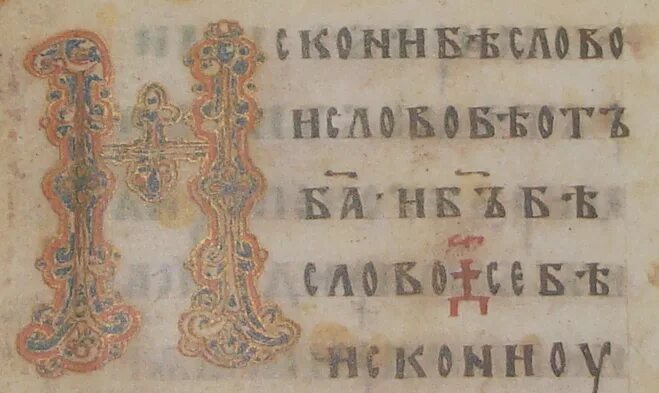 Искони бѣ слово
и слово бѣ отъ
б҃а· и б҃ъ бѣ
слово ⁜ се бѣ
искони оу